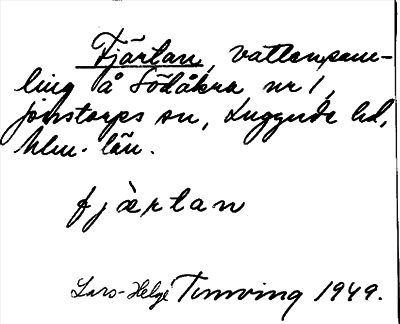 Fjärlan, vattensam-
ling å Södåkra nr 1,
Jonstorps sn, Luggude hd,
Mlm. län.
fjàrlan
Lars-Helge Tunving 1949.